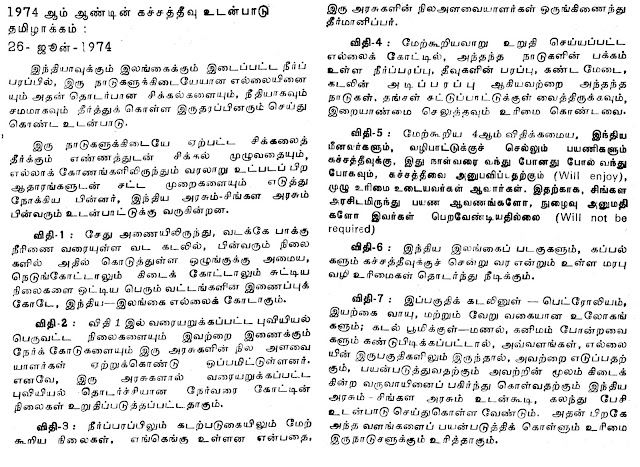 1974 ஆம் ஆண்டின் கச்சத்தீவு உடன்பாடு
தமிழாக்கம் :
26- ஜூன்-1974
இந்தியாவுக்கும் இலங்கைக்கும் இடைப்பட்ட நீர்ப்
பரப்பில், இரு நாடுகளுக்கிடையேயான எல்லையினை
யும் அதன் தொடர்பான சிக்கல்களையும், நீதியாகவும்
சமமாகவும் தீர்த்துக் கொள்ள இருதரப்பினரும் செய்து
கொண்ட உடன்பாடு.
இரு நாடுகளுக்கிடையே ஏற்பட்ட சிக்கலைத்
தீர்க்கும் எண்ணத்துடன் சிக்கல் முழுவதையும்,
எல்லாக் கோணங்களிலிருந்தும் வரலாறு உட்படப் பிற
ஆதாரங்களுடன் சட்ட முறைகளையும் எடுத்து
நோக்கிய பின்னர், இந்திய அரசும்-சிங்கள அரசும்
பின்வரும் உடன்பாட்டுக்கு வருகின்றன.
விதி-1 : சேது அணையிலிருந்து, வடக்கே பாக்கு
நீரிணை வரையுள்ள வட கடலில், பின்வரும் நிலை
களில் அதில் கொடுத்துள்ள ஒழுங்குக்கு அமைய,
நெடுங்கோட்டாலும் கிடைக் கோட்டாலும் சுட்டிய
நிலைகளை ஒட்டிய பெரும் வட்டங்களின் இணைப்புக்
கோடே, இந்திய—இலங்கை எல்லைக் கோடாகும்.
விதி-2 : விதி 1 இல் வரையறுக்கப்பட்ட புவியியல்
பெருவட்ட நிலைகளையும் இவற்றை இணைக்கும்
நேர்க் கோடுகளையும் இரு அரசுகளின் நில அளவை
யாளர்கள் ஏற்றுக்கொண்டு ஒப்பமிட்டுள்ளனர்.
எனவே, இரு அரசுகளால் வரையறுக்கப்பட்ட
புவியியல் தொடர்ச்சியான நேர்வரை கோட்டின்
நிலைகள் உறுதிப்படுத்தப்பட்டதாகும்.
விதி-3 : நீர்ப்பரப்பிலும் கடற்படுகையிலும் மேற்
கூறிய நிலைகள், எங்கெங்கு உள்ளன என்பதை,
இரு அரசுகளின் நிலஅளவையாளர்கள் ஒருங்கிணைந்து
தீர்மானிப்பர்.
விதி-4 : மேற்கூறியவாறு உறுதி செய்யப்பட்ட
எல்லைக் கோட்டில், அந்தந்த நாடுகளின் பக்கம்
உள்ள நீர்ப்பரப்பு, தீவுகளின் பரப்பு, கண்ட மேடை,
கடலின் அடிப்பரப்பு ஆகியவற்றை அந்தந்த
நாடுகள், தங்கள் சட்டுப்பாட்டுக்குள் வைத்திருக்கவும்,
இறையாண்மை செலுத்தவும் உரிமை கொண்டவை.
விதி-5 : மேற்கூறிய 4ஆம் விதிக்கமைய, இந்திய
மீனவர்களும், வழிபாட்டுக்குச் செல்லும் பயணிகளும்
கச்சத்தீவுக்கு, இது நாள்வரை வந்து போனது போல் வந்து
போகவும், கச்சத்தீவை அனுபவிப்பதற்கும் (Will enjoy),
முழு உரிமை உடையவர்கள் ஆவார்கள். இதற்காக, சிங்கள
அரசிடமிருந்து பயண ஆவணங்களோ, நுழைவு அனுமதி
களோ இவர்கள் பெறவேண்டியதில்லை (Will not be
required)
விதி-6 : இந்திய இலங்கைப் படகுகளும், கப்பல்
களும் கச்சத்தீவுக்குச் சென்று வர என்றும் உள்ள மரபு
வழி உரிமைகள் தொடர்ந்து நீடிக்கும்.
விதி-7 : இப்பகுதிக் கடலினுள் — பெட்ரோலியம்,
இயற்கை வாயு, மற்றும் வேறு வகையான உலோகங்
களும்; கடல் பூமிக்குள்—மணல், கனிமம் போன்றவை
களும் கண்டுபிடிக்கப்பட்டால், அவ்வளங்கள், எல்லை
யின் இருபகுதிகளிலும் இருந்தால், அவற்றை எடுப்பதற்
கும், பயன்படுத்துவதற்கும் அவற்றின் மூலம் கிடைக்
கின்ற வருவாயினைப் பகிர்ந்து கொள்வதற்கும் இந்திய
அரசும் - சிங்கள அரசும் உடன்கூடி, கலந்து பேசி
உடன்பாடு செய்துகொள்ள வேண்டும். அதன் பிறகே
அந்த வளங்களைப் பயன்படுத்திக் கொள்ளும் உரிமை
இருநாடுகளுக்கும் உரித்தாகும்.